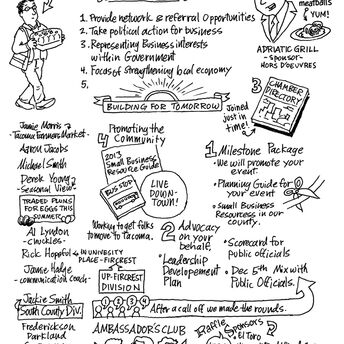 1. Provide network & referral opportunities
2. Take political action for business
3. Representing Business interests
within Government
4. Focas of strengthening local economy
5.
meatballs
YUM!
ADRIATIC GRILL
- SPONSOR -
HORS D'OEUVRES
BUILDING FOR TOMORROW
3
CHAMBER
DIRECTORY
Joined
just in
time!
Jamie Morris
- Tacoma Farmers Market -
Aaron Jacobs
Michael Smith
Derek Young
- Seasonal View -
TRADED PLUMS
FOR EGGS THIS
SUMMER
Al Lyndon
- chuckles -
Rick Hopful
Jamie Hadge
- communication coach -
Jackie Smith
South County Div.
Frederickson
Parkland
4 Promoting the
Community
2013
Small Business
Resource Guide
BUS STOP
LIVE
DOWN-
TOWN!
Working to get folks
to move to Tacoma.
IN UNIVERSITY
PLACE - FIRCREST
UP-FIRCREST
DIVISION
1 Milestone Package
• We will promote your
event.
• Planning Guide for
your event
• Small Business
Resources in our
county.
2 Advocacy
on your
behalf.
• Leadership
Developement
Plan
• Scorecard for
public officials
• Dec 5th Mix with
Public Officials.
1 2 3 4
After a call off we made the rounds.
AMBASSADOR'S CLUB
Raffle
Sponsors
? El Toro